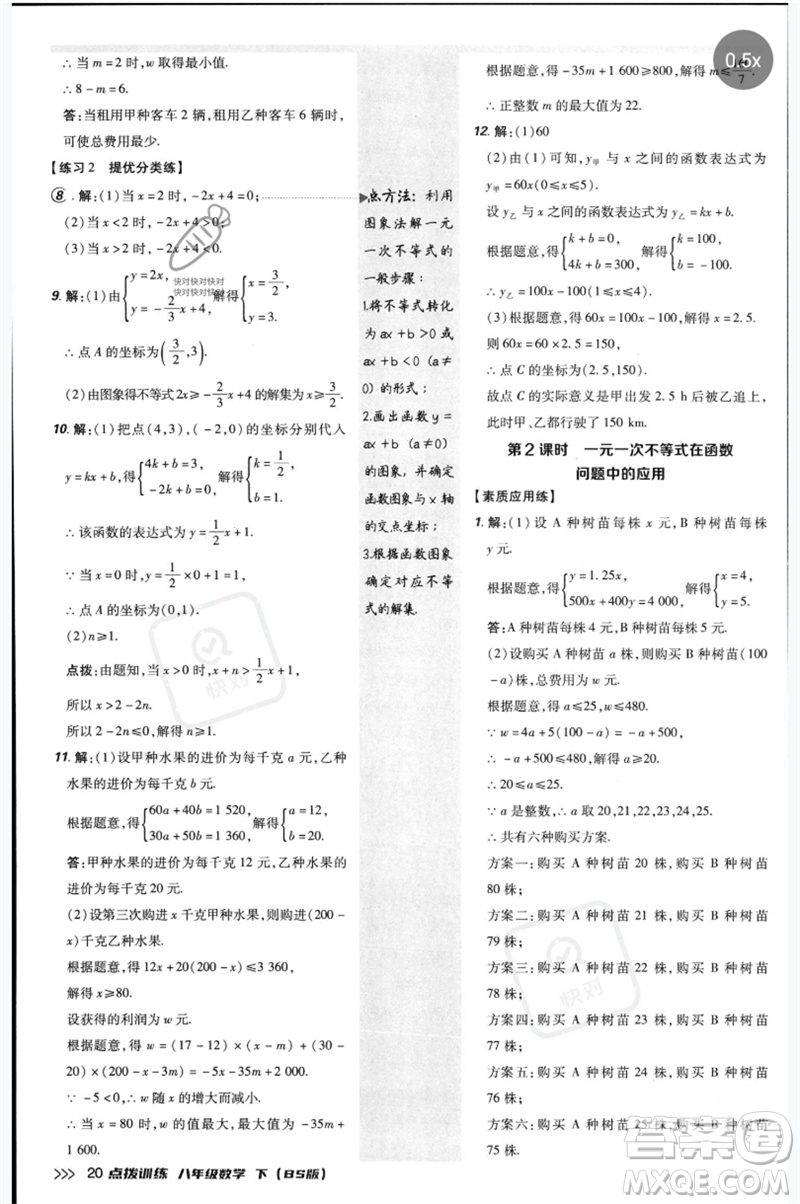 ∴ 当 m = 2 时, w 取得最小值.
∴ 8 - m = 6.
答: 当租用甲种客车 2 辆, 租用乙种客车 6 辆时,
可使总费用最少.
【练习 2 提优分类练】
8. 解: (1) 当 x = 2 时, -2x + 4 = 0;
(2) 当 x < 2 时, -2x + 4 > 0;
(3) 当 x > 2 时, -2x + 4 < 0.
9. 解: (1) 由 { y = 2x, y = -2/3 x + 4, 解得 { x = 3/2, y = 3.
快对快对快对
快对快对快对
∴ 点 A 的坐标为 (3/2, 3).
(2) 由图象得不等式 2x ≥ -2/3 x + 4 的解集为 x ≥ 3/2.
10. 解: (1) 把点 (4,3), (-2,0) 的坐标分别代入
y = kx + b, 得 { 4k + b = 3, -2k + b = 0, 解得 { k = 1/2, b = 1.
∴ 该函数的表达式为 y = 1/2 x + 1.
∵ 当 x = 0 时, y = 1/2 x + 1 = 1,
∴ 点 A 的坐标为 (0,1).
(2) n ≥ 1.
点拨: 由题知, 当 x > 0 时, x + n > 1/2 x + 1,
所以 x > 2 - 2n.
所以 2 - 2n ≤ 0, 解得 n ≥ 1.
11. 解: (1) 设甲种水果的进价为每千克 a 元, 乙种
水果的进价为每千克 b 元.
根据题意, 得 { 60a + 40b = 1 520, 30a + 50b = 1 360, 解得 { a = 12, b = 20.
答: 甲种水果的进价为每千克 12 元, 乙种水果
的进价为每千克 20 元.
(2) 设第三次购进 x 千克甲种水果, 则购进 (200 -
x) 千克乙种水果.
根据题意, 得 12x + 20(200 - x) ≤ 3 360,
解得 x ≥ 80.
设获得的利润为 w 元.
根据题意, 得 w = (17 - 12) × (x - m) + (30 -
20) × (200 - x - 3m) = -5x - 35m + 2 000,
∵ -5 < 0, ∴ w 随 x 的增大而减小.
∴ 当 x = 80 时, w 的值最大, 最大值为 -35m +
1 600.
点方法: 利用
图象法解一元
一次不等式的
一般步骤:
1. 将不等式转化
为 ax + b > 0 或
ax + b < 0 (a ≠
0) 的形式;
2. 画出函数 y =
ax + b (a ≠ 0)
的图象, 并确定
函数图象与 x 轴
的交点坐标;
3. 根据函数图象
确定对应不等
式的解集.
0.5x
根据题意, 得 -35m + 1 600 ≥ 800, 解得 m ≤ /7.
∴ 正整数 m 的最大值为 22.
12. 解: (1) 60
(2) 由 (1) 可知, y甲 与 x 之间的函数表达式为
y甲 = 60x (0 ≤ x ≤ 5).
设 y乙 与 x 之间的函数表达式为 y乙 = kx + b.
根据题意, 得 { k + b = 0, 4k + b = 300, 解得 { k = 100, b = -100.
∴ y乙 = 100x - 100 (1 ≤ x ≤ 4).
(3) 根据题意, 得 60x = 100x - 100, 解得 x = 2.5.
则 60x = 60 × 2.5 = 150.
∴ 点 C 的坐标为 (2.5, 150).
故点 C 的实际意义是甲出发 2.5 h 后被乙追上,
此时甲、乙都行驶了 150 km.
第 2 课时 一元一次不等式在函数
问题中的应用
【素质应用练】
1. 解: (1) 设 A 种树苗每株 x 元, B 种树苗每株
y 元.
根据题意, 得 { y = 1.25x, 500x + 400y = 4 000, 解得 { x = 4, y = 5.
答: A 种树苗每株 4 元, B 种树苗每株 5 元.
(2) 设购买 A 种树苗 a 株, 则购买 B 种树苗 (100
- a) 株, 总费用为 w 元.
根据题意, 得 a ≤ 25, w ≤ 480.
∵ w = 4a + 5(100 - a) = -a + 500,
∴ -a + 500 ≤ 480, 解得 a ≥ 20.
∴ 20 ≤ a ≤ 25.
∵ a 是整数, ∴ a 取 20, 21, 22, 23, 24, 25.
∴ 共有六种购买方案.
方案一: 购买 A 种树苗 20 株, 购买 B 种树苗
80 株;
方案二: 购买 A 种树苗 21 株, 购买 B 种树苗
79 株;
方案三: 购买 A 种树苗 22 株, 购买 B 种树苗
78 株;
方案四: 购买 A 种树苗 23 株, 购买 B 种树苗
77 株;
方案五: 购买 A 种树苗 24 株, 购买 B 种树苗
76 株;
方案六: 购买 A 种树苗 25 株, 购买 B 种树苗
75 株.
快对
快对
答案圈
MXQE.COM
>>> 20 点拨训练 八年级数学 下 (BS版)